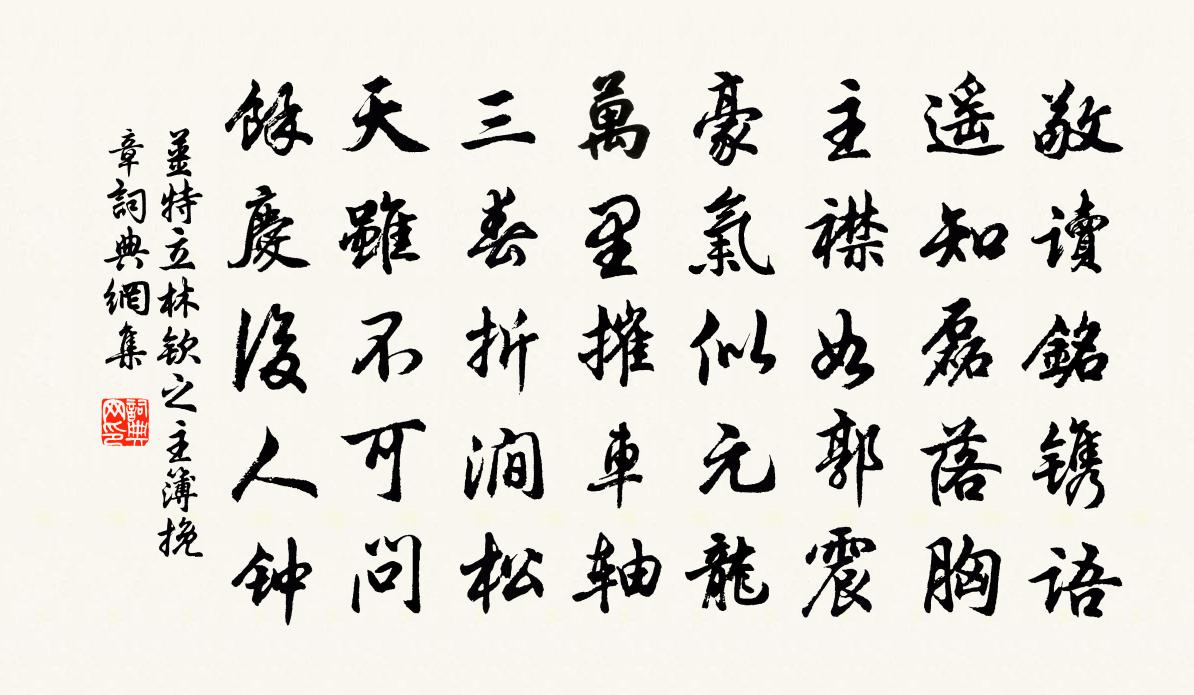 敬讀銘镌語
遥知磊落胸
主襟如郭震
豪氣似元龍
萬里摧車軸
三春折澗松
天雖不可問
餘慶後人钟
薑特立林欽之主簿挽
章詞典網集
詞典
网印